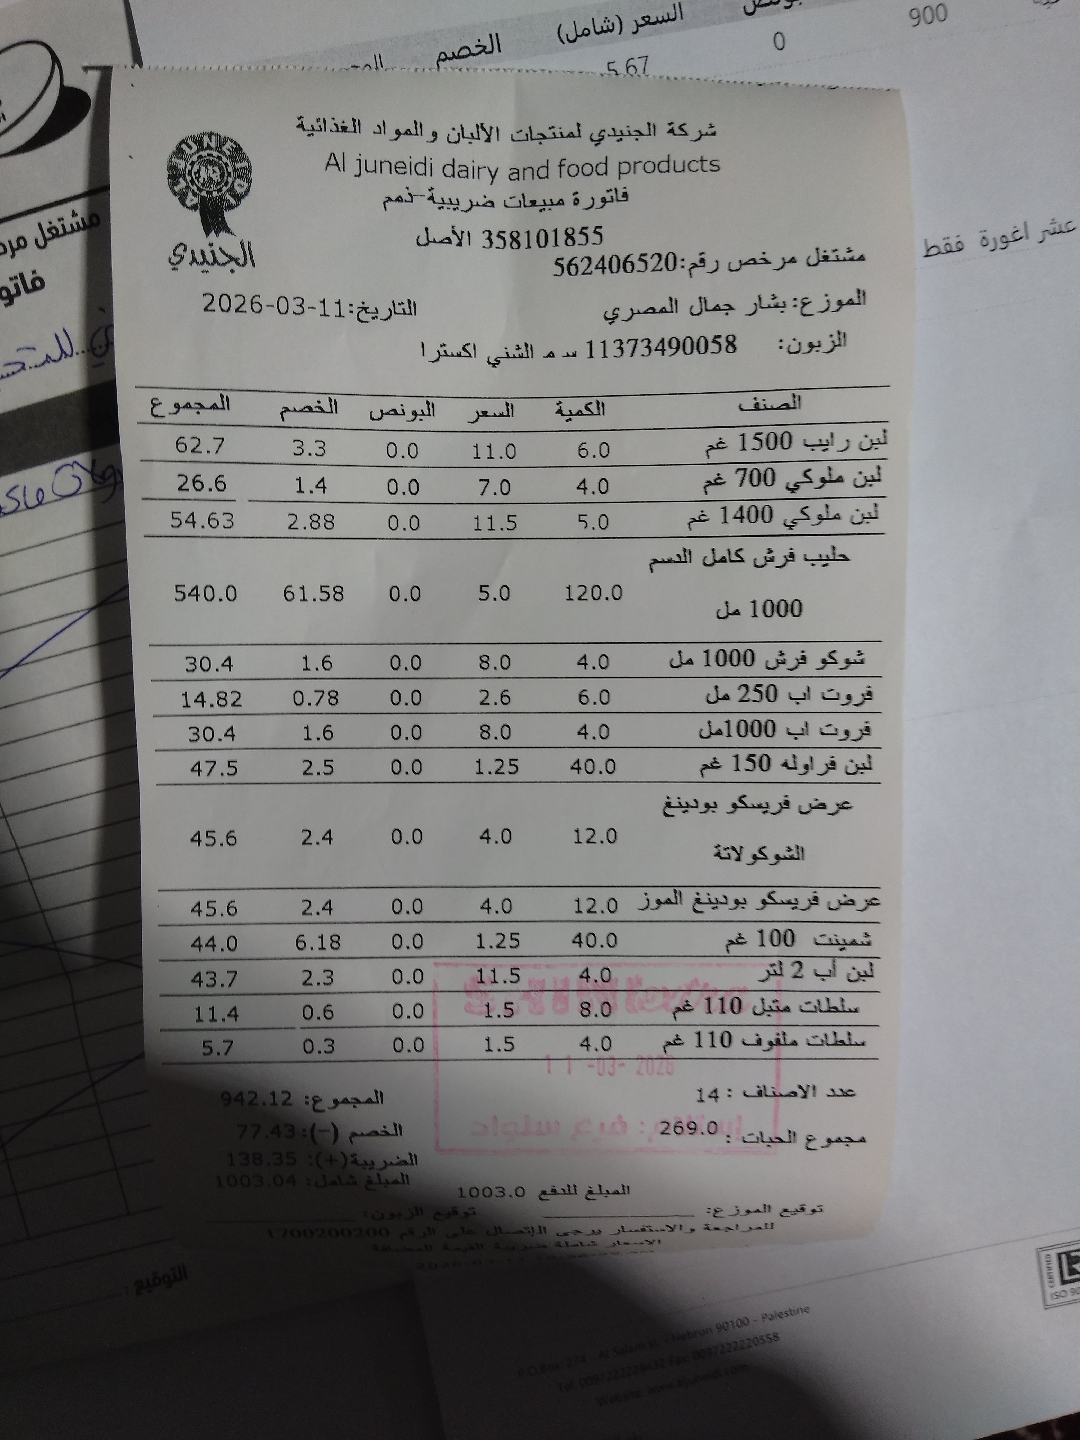 السعر (شامل)
الخصم
900
0
5.67
عشر اغورة فقط
شركة الجنيدي لمنتجات الألبان والمواد الغذائية
Al juneidi dairy and food products
فاتورة مبيعات ضريبية-ذمم
358101855 الأصل
الجنيدي
مشتغل مرخص رقم:562406520
الموزع: بشار جمال المصري
التاريخ:11-03-2026
الزبون: 11373490058 س م الشني اكسترا
الصنف الكمية السعر البونص الخصم المجموع
لبن رايب 1500 غم 6.0 11.0 0.0 3.3 62.7
لبن ملوكي 700 غم 4.0 7.0 0.0 1.4 26.6
لبن ملوكي 1400 غم 5.0 11.5 0.0 2.88 54.63
حليب فرش كامل الدسم
1000 مل 120.0 5.0 0.0 61.58 540.0
شوكو فرش 1000 مل 4.0 8.0 0.0 1.6 30.4
فروت اب 250 مل 6.0 2.6 0.0 0.78 14.82
فروت اب 1000مل 4.0 8.0 0.0 1.6 30.4
لبن فراوله 150 غم 40.0 1.25 0.0 2.5 47.5
عرض فريسكو بودينغ
الشوكولاتة 12.0 4.0 0.0 2.4 45.6
عرض فريسكو بودينغ الموز 12.0 4.0 0.0 2.4 45.6
شمينت 100 غم 40.0 1.25 0.0 6.18 44.0
لبن أب 2 لتر 4.0 11.5 0.0 2.3 43.7
سلطات متبل 110 غم 8.0 1.5 0.0 0.6 11.4
سلطات ملفوف 110 غم 4.0 1.5 0.0 0.3 5.7
11 -03- 2026
عدد الاصناف : 14
المجموع: 942.12
مجموع الحبات : 269.0
الخصم (-): 77.43
الضريبة(+): 138.35
المبلغ شامل: 1003.04
المبلغ للدفع 1003.0
توقيع الموزع:
توقيع الزبون:
للمراجعة والاستفسار يرجى الإتصال على الرقم 1700200200
الاسعار شاملة ضريبة القيمة المضافة
التوقيع :
Hebron 90100 - Palestine